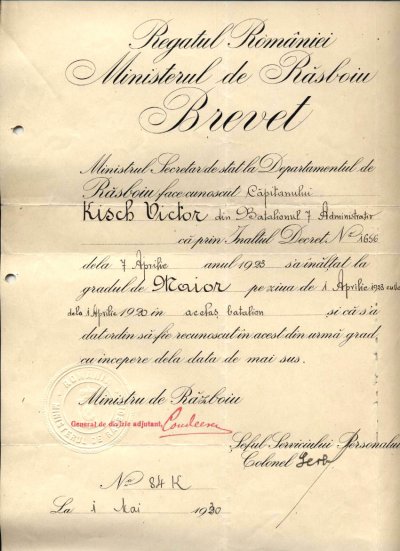 Regatul României
Ministerul de Răsboiu
Brevet
Ministrul Secretar de stat la Departamentul de
Răsboiu face cunoscut Căpitanului
Kisch Victor din Batalionul 7 Administrație
că prin Inaltul Decret Nº 1656
dela 7 Aprilie anul 1923 sa inălțat la
gradul de Maior pe ziua de 1 Aprilie 1923
dela 1 Aprilie 1920 in acelaș batalion și că s'a
dat ordin să fie recunoscut in acest din urmă grad,
cu incepere dela data de mai sus.
Ministru de Războiu
General de divizie adjutant,
Șeful Serviciului Personalului
Colonel
Nº 84 K
La 1 Mai 1930